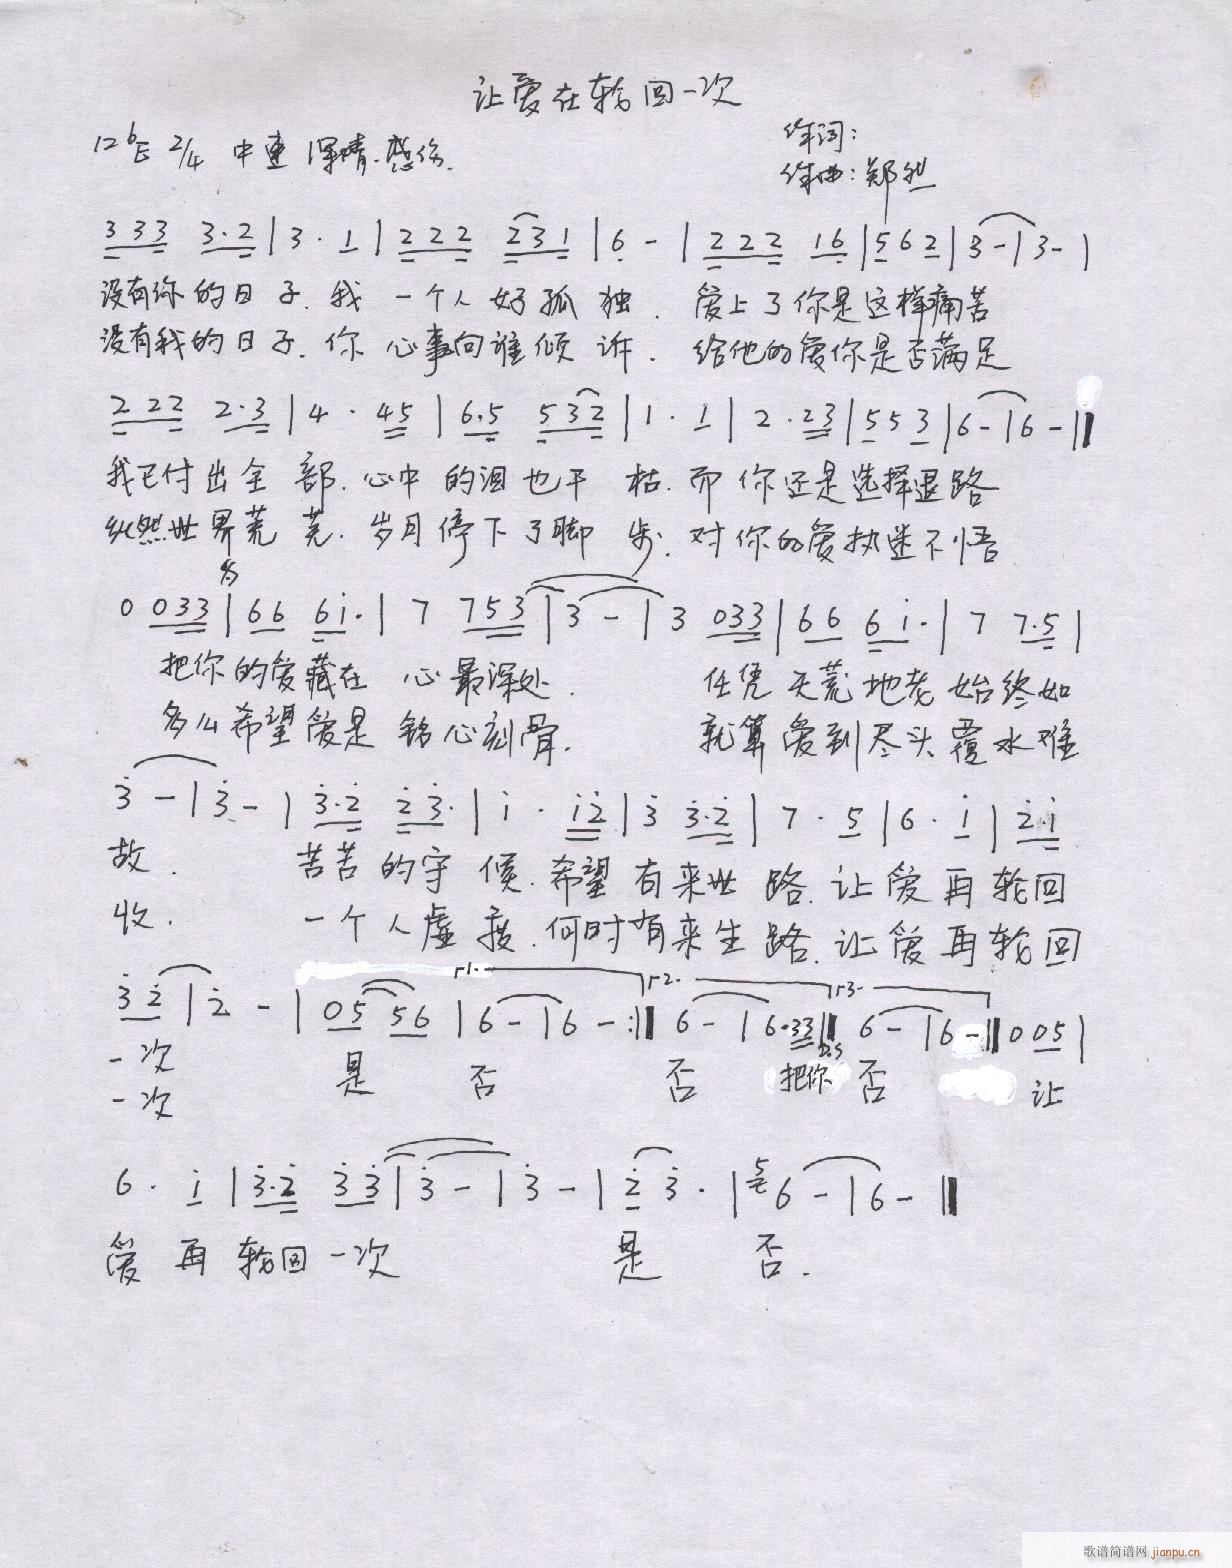 让爱在轮回一次
1=bE 2/4 中速 深情.感伤.
作词:
作曲:郑
333 3·2 | 3 · 1 | 222 231 | 6 - | 222 16 | 562 | 3 - | 3 - |
没有你的日子.我一个人好孤独.爱上了你是这样痛苦
没有我的日子.你心事向谁倾诉.给他的爱你是否满足
222 2·3 | 4 · 45 | 6·5 532 | 1 · 1 | 2 · 23 | 553 | 6 - | 6 - ‖
我已付出全部.心中的泪也干枯.而你还是选择退路
纵然世界荒芜.岁月停下了脚步.对你的爱执迷不悟
0 033 | 66 6i· | 7 753 | 3 - | 3 033 | 66 6i· | 7 7·5 |
把你的爱藏在心最深处.任凭天荒地老始终如
多么希望爱是铭心刻骨.就算爱到尽头覆水难
3 - | 3 - | 3·2 23· | i · i2 | 3 3·2 | 7 · 5 | 6 · i | 2·i
故.苦苦的守候.希望有来世路.让爱再轮回
收.一个人虚度.何时有来生路.让爱再轮回
1. 2. 3.
32 | 2 - | 05 56 | 6 - | 6 - :‖ 6 - | 6·33 ‖ 6 - | 6 - ‖ 0 05 |
D.S
一次 是 否 否 把你 否 让
一次
6 · i | 3·2 33 | 3 - | 3 - | 2 3 · | 5 6 - | 6 - ‖
爱再轮回一次 是 否.
歌谱简谱网 jianpu.cn